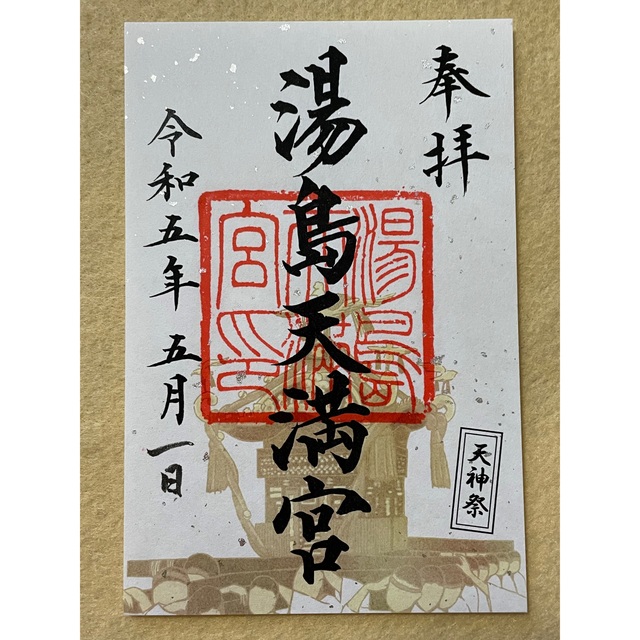 奉拝
湯島天満宮
令和五年 五月一日
天神祭
湯島天満宮印